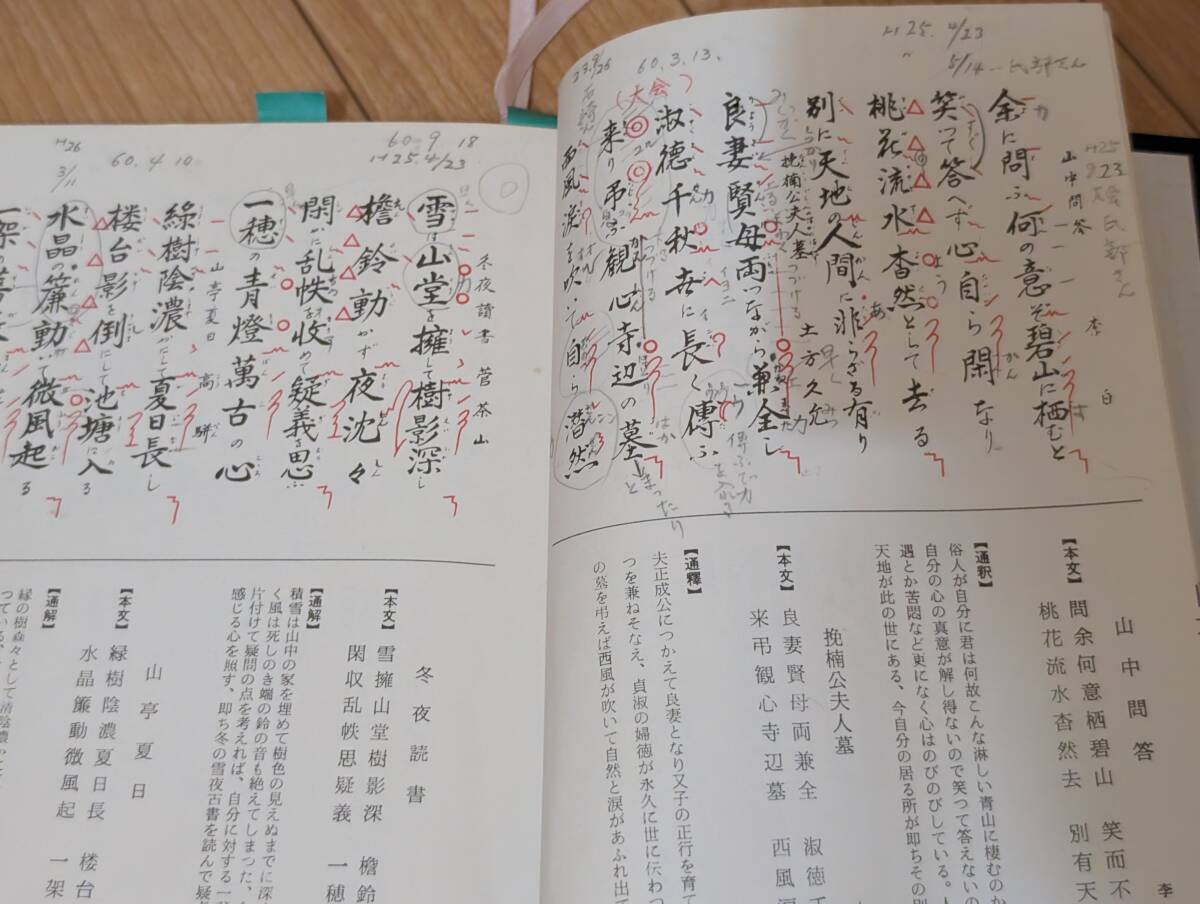 H25. 4/23
5/14
山中問答 李白
余に問ふ何の意ぞ碧山に栖むと
笑って答へず心自ら閑なり
桃花流水杳然として去る
別に天地の人間に非ざる有り
挽楠公夫人墓 土方久元
良妻賢母両つながら兼全し
淑徳千秋世に長く傳ふ
来り弔ふ観心寺辺の墓
西風涙を吹いて自ら潸然
60.3.13.
(大会)
23.9/26
山中問答
李
【本文】
問余何意栖碧山 笑而不
桃花流水杳然去 別有天
【通釈】
俗人が自分に君は何故こんな淋しい青山に棲むのか
自分の心の真意が解し得ないので笑つて答えないの
遇とか苦悶など更になく心はのびのびしている。人
天地が此の世にある、今自分の居る所が即ちその別
挽楠公夫人墓
【本文】
良妻賢母両兼全 淑徳千
来弔観心寺辺墓 西風涙
【通釋】
夫正成公につかえて良妻となり又子の正行を育て
つを兼ねそなえ、貞淑の婦徳が永久に世に伝わつ
の墓を弔えば西風が吹いて自然と涙があふれ出て
60.9.18
H25 4/23
冬夜讀書 菅茶山
雪は山堂を擁して樹影深し
檐鈴動かず夜沈々
閑かに乱帙を収めて疑義を思ふ
一穂の青燈萬古の心
60.4.10
山亭夏日 高駢
緑樹陰濃かにして夏日長し
楼台影を倒にして池塘に入る
H26 3/11
水晶の簾動いて微風起る
一架の薔
冬夜読書
【本文】
雪擁山堂樹影深 檐鈴
閑収乱帙思疑義 一穂
【通解】
積雪は山中の家を埋めて樹色の見えぬまでに深
く風は死しのき端の鈴の音も絶えてしまつた、
片付けて疑問の点を考えれば、自分に対する一
感じる心を照す、即ち冬の雪夜古書を読んで疑
山亭夏日
【本文】
緑樹陰濃夏日長 楼台
水晶簾動微風起 一架
【通解】
緑の樹森々として清陰濃
つている、